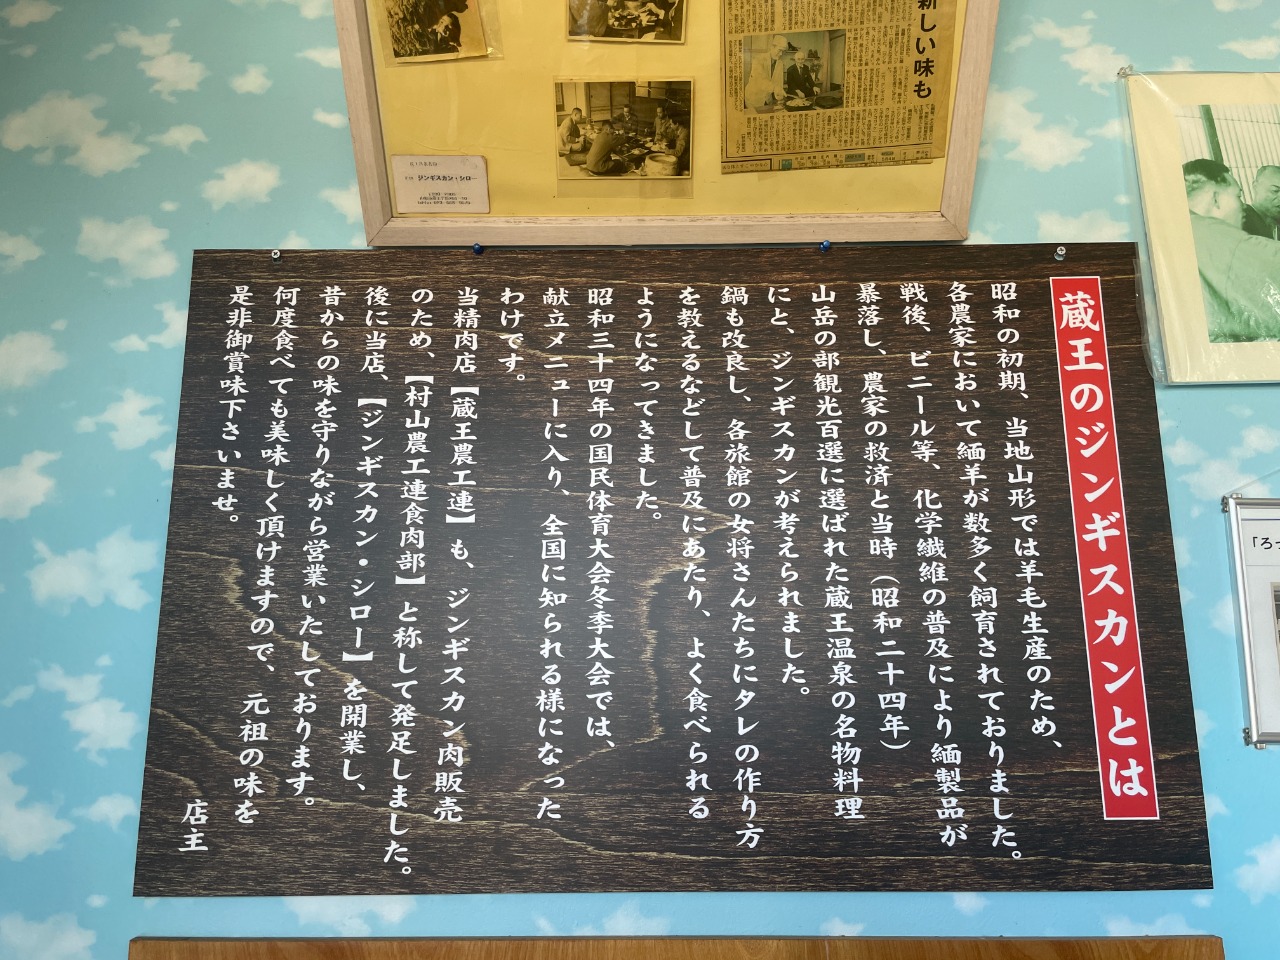 新しい味も
ジンギスカン・シロー
「ろっ
蔵王のジンギスカンとは
昭和の初期、当地山形では羊毛生産のため、
各農家において緬羊が数多く飼育されておりました。
戦後、ビニール等、化学繊維の普及により緬製品が
暴落し、農家の救済と当時（昭和二十四年）
山岳の部観光百選に選ばれた蔵王温泉の名物料理
にと、ジンギスカンが考えられました。
鍋も改良し、各旅館の女将さんたちにタレの作り方
を教えるなどして普及にあたり、よく食べられる
ようになってきました。
昭和三十四年の国民体育大会冬季大会では、
献立メニューに入り、全国に知られる様になった
わけです。
当精肉店【蔵王農工連】も、ジンギスカン肉販売
のため、【村山農工連食肉部】と称して発足しました。
後に当店、【ジンギスカン・シロー】を開業し、
昔からの味を守りながら営業いたしております。
何度食べても美味しく頂けますので、元祖の味を
是非御賞味下さいませ。
店主